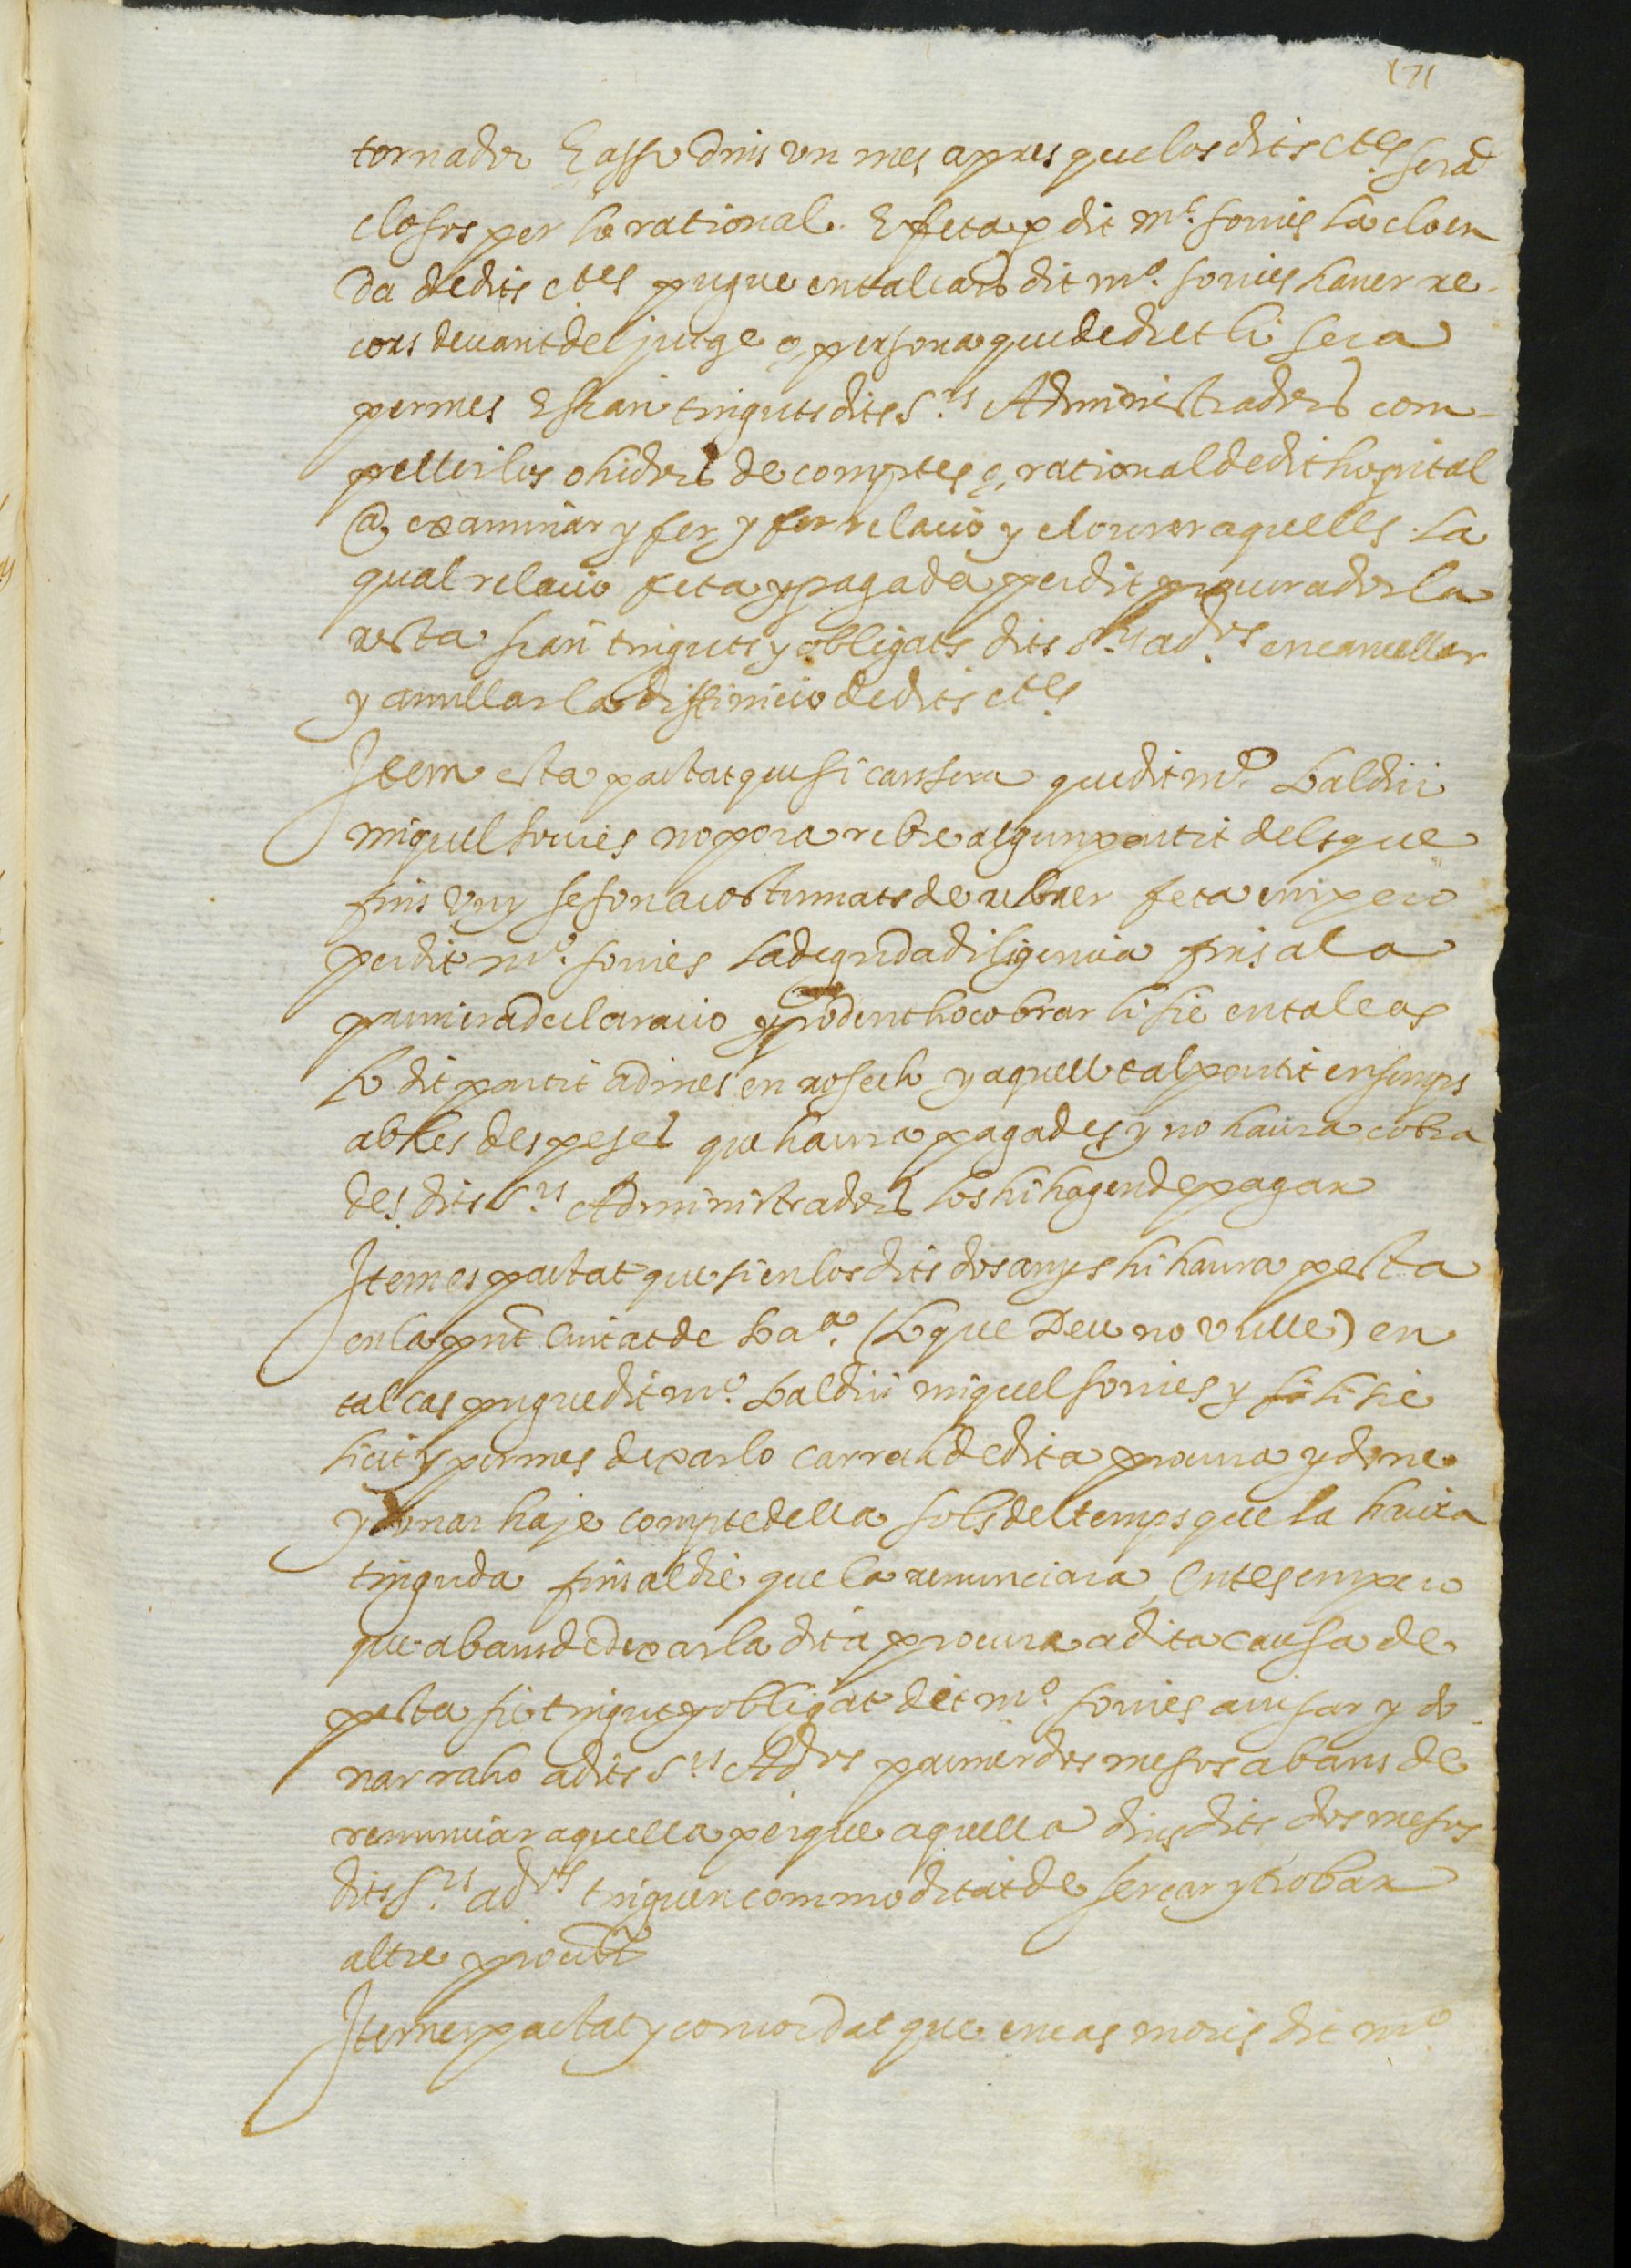 171
tornador E asso dins un mes apres que los dits ctes. seran
closos per lo rational. E feta per dit mº. sovies la cloen
da de dits ctes pugue en tal cas dit mº. sovies haver re-
cors devant del jutge o, persona que de dret li sera
permes E sian tinguts dits S.rs Administradors com-
pellir los ohidors de comptes o, rational de dit hospital
a, examinar y fer, y fer relacio y cloure aquells. La
qual relacio feta y pagada per dit procurador la
resta sian tinguts y obligats dits S.rs ad.rs encancellar
y annullar la diffinicio de dits ctes
Item esta pactat que si cars sera que dit mº. Baldiri
miquel sovies no pora rebre algun partit dels que
fins vuy se son acostumats de rebrer feta empero
per dit mº. sovies la deguda diligencia fins a la
primera declaracio y podentho cobrar li sie en tal cas
lo dit partit admes en rosech y aquell tal partit ensemps
ab les despeses que haura pagades y no haura cobra
des dits S.rs Administradors los hi hagen de pagar
Item es pactat que si en los dits dos anys hi haura pesta
en la pnt Ciutat de Bar.a (lo que Deu no vulle) en
tal cas pugue dit mº. Baldiri miquel sovies y si li sie
licit y permes dexar lo carrech de dita procura y done
y donar haje compte della sols del temps que la haura
tinguda fins al die que la renunciara, Entes empero
que abans de dexar la dita procura a dita causa de
pesta sie tingut y obligat dit mº sovies avisar y do-
nar raho a dits S.rs Ad.rs primer dos mesos abans de
renunciar aquella perque aquella dins dits dos mesos
dits S.rs ad.rs tinguen commoditat de sercar y trobar
altre procur.or
Item es pactat y concordat que en cas moris dit mº